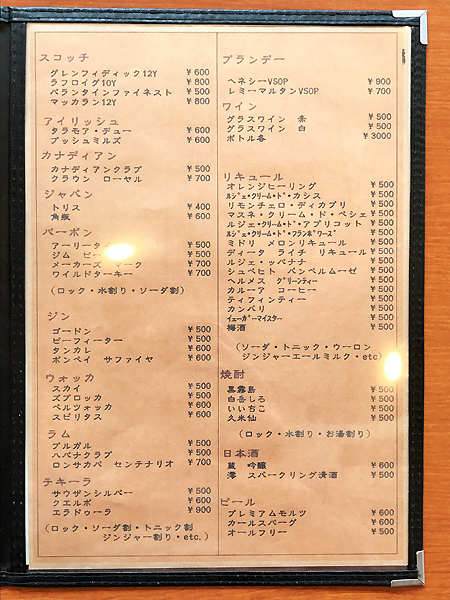 スコッチ
グレンフィディック12Y ￥600
ラフロイグ10Y ￥800
バランタインファイネスト ￥500
マッカラン12Y ￥800
アイリッシュ
タラモア・デュー ￥600
ブッシュミルズ ￥600
カナディアン
カナディアンクラブ ￥500
クラウン ローヤル ￥700
ジャパン
トリス ￥400
角瓶 ￥600
バーボン
アーリータイ ￥500
ジム ビー ￥500
メーカーズ マーク ￥700
ワイルドターキー ￥700
(ロック・水割り・ソーダ割)
ジン
ゴードン ￥500
ビーフィーター ￥500
タンカレ ￥600
ボンベイ サファイヤ ￥600
ウォッカ
スカイ ￥500
ズブロッカ ￥500
ベルヴォッカ ￥600
スピリタス ￥600
ラム
ブルガル ￥500
ハバナクラブ ￥500
ロンサカパ センテナリオ ￥700
テキーラ
サウザンシルバー ￥500
クエルボ ￥600
エラドゥーラ ￥900
(ロック・ソーダ割・トニック割
ジンジャー割り・etc.)
ブランデー
ヘネシーVSOP ￥900
レミーマルタンVSOP ￥700
ワイン
グラスワイン 赤 ￥500
グラスワイン 白 ￥500
ボトル各 ￥3000
リキュール
オレンジヒーリング ￥500
ﾙｼﾞｪ・ｸﾘｰﾑ・ﾄﾞ・カシス ￥500
リモンチェロ・ディカプリ ￥500
マスネ・クリーム・ド・ペシェ ￥500
ルジェ・クリーム・ド・アプリコット ￥500
ﾙｼﾞｪ・ｸﾘｰﾑ・ﾄﾞ・ﾌﾗﾝﾎﾞﾜｰｽﾞ ￥500
ミドリ メロンリキュール ￥500
ディータ ライチ リキュール ￥500
ルジェ・ッバナナ ￥500
シュペヒト パンペルムーゼ ￥500
ヘルメス グリーンティー ￥500
カルーア コーヒー ￥500
ティフィンティー ￥500
カンパリ ￥500
ｲｪｰｶﾞｰﾏｲｽﾀｰ ￥500
梅酒 ￥500
(ソーダ・トニック・ウーロン
ジンジャーエールミルク・etc)
焼酎
黒霧島 ￥500
白岳しろ ￥500
いいちこ ￥500
久米仙 ￥500
(ロック・水割り・お湯割り)
日本酒
蔵 吟醸 ￥600
澪 スパークリング清酒 ￥500
ビール
プレミアムモルツ ￥600
カールスバーグ ￥600
オールフリー ￥500